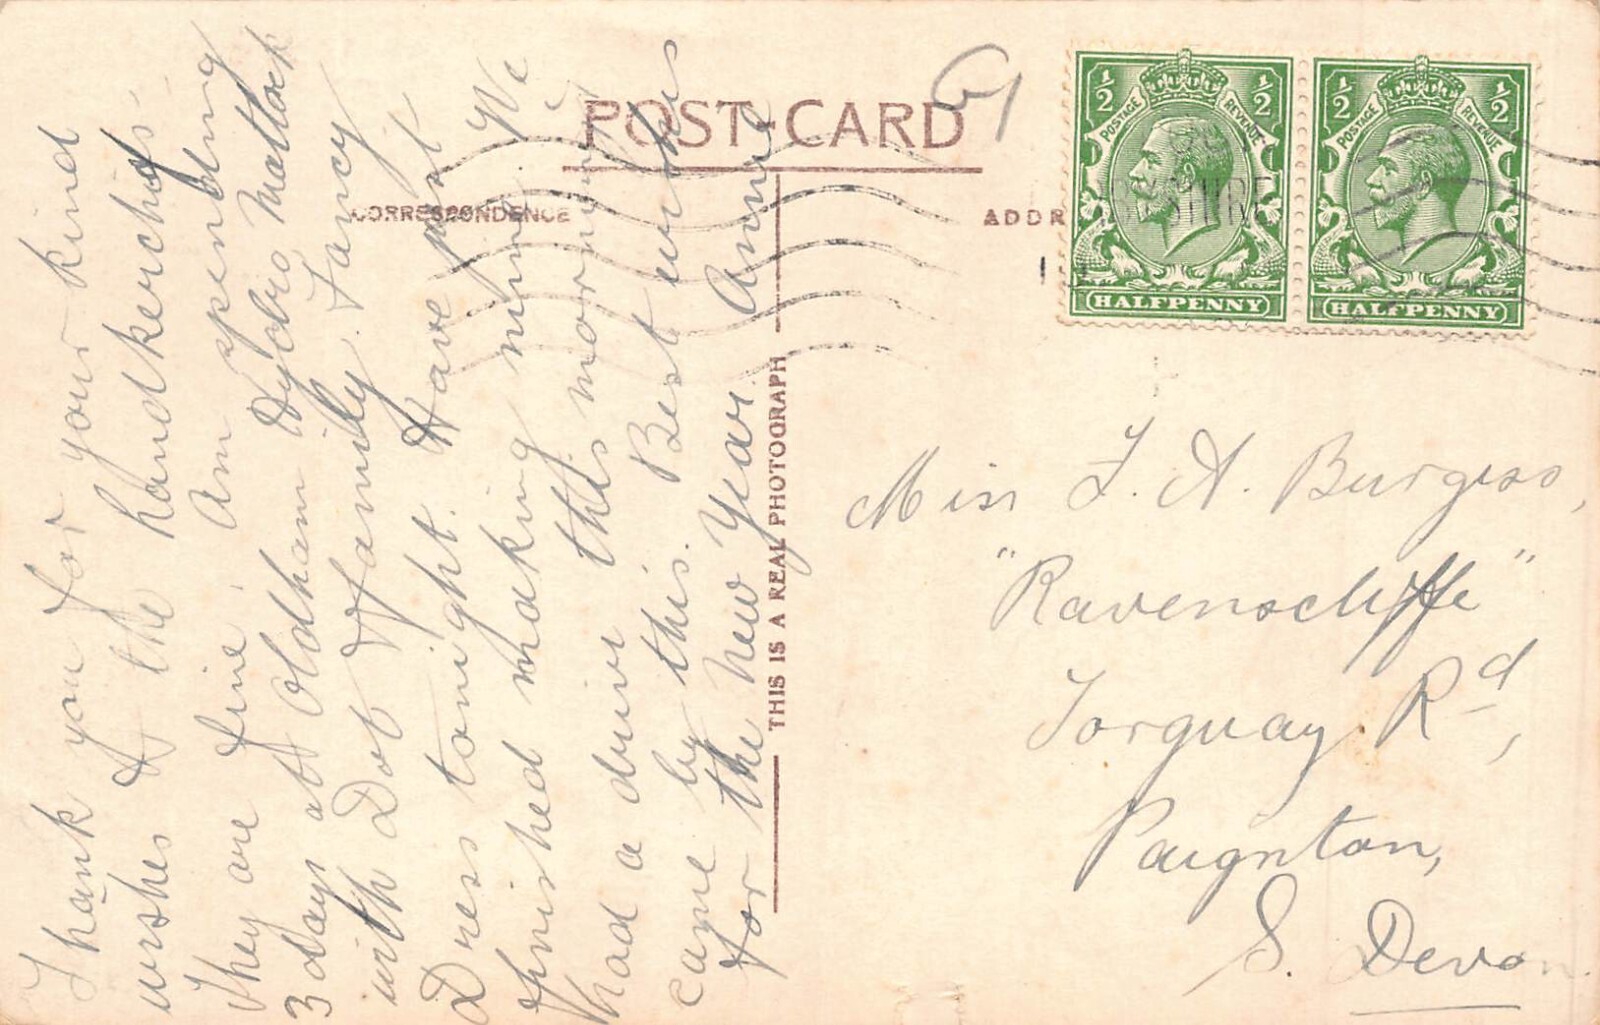 POST-CARD
CORRESPONDENCE
ADDR
THIS IS A REAL PHOTOGRAPH
1/2 1/2
POSTAGE REVENUE
HALFPENNY
1/2 1/2
POSTAGE REVENUE
HALFPENNY
Thank you for your kind
wishes & the handkerchiefs.
They are fine. Am spending
3 days at Oldham Hydro Matlock
with Dot & family. Fancy
Dress tonight. Have just
finished making mine. We
had a drive this morning &
came by this. Best wishes
for the New Year. Annie
Miss F. A. Burgess,
"Ravenscliffe"
Torquay Rd,
Paignton,
S. Devon.